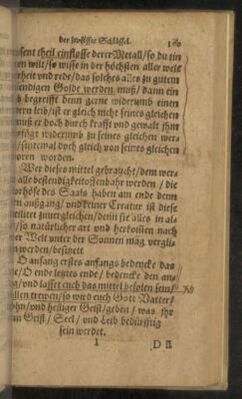 der zwölffte Schlüssel. 
tausent theil einflosse derer Metall / so du tin
en wilt / so wisse in der höchsten aller welt
heit und rede / das solches alles zu gutem
endigen Golde werden muß / dann ein
b begreifft denn gerne widerumb einen
ern leib / ist er gleich nicht seines gleichen
muß er doch durch krafft und gewalt ihm
fügt widerumb zu seines gleichen wer-
sintemal doch gleich von seines gleichen
oren worden.
Wer dieses mittel gebraucht / dem wer-
alle bestendigkeit offenbahr werden / die
orhöfe des Saals haben am ende denn
n außgang / und keiner Creatur ist diese
iliter zuvergleichen / denn sie alles in al-
so natürlicher art und herkommen nach
er Welt unter der Sonnen mag vergli-
n werden / besitzet.
O anfang erstes anfangs bedencke das
de / O ende letztes ende / bedencke den an-
g / und lasset euch das mittel befolen sein /
allen trewen / so wird euch Gott Vatter /
ohn / und heiliger Geist / geben / was ihr
m Geist / Seel / und Leib bedürfftig
sein werdet.